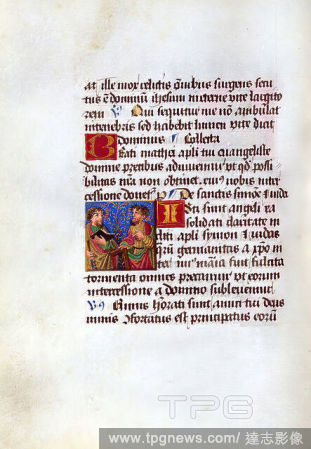 at ille mox relictis oĩbus surgens secu
tus ẽ dominũ ihesum
rem Qui sequitur me nõ ambulat
intenebris sed habebit lumen vite dicit
dominus Collecta
Beati mathei apli tui euangeliste
domine precibus adiuuemur vt qd possi
bilitas nra non obtinet eius nobis inter
cessione donet De sanctis simõe & iuda
Isti sunt angeli ra
solidati claritate
apli symon & iudas
germanitas a
tormenta omnes precamur vt eorum
intercessione a domino subleuemur
Nimis honorati sunt amici tui deus
nimis confortatus est principatus eorũ
TPG
www.tpgnews.com/ 達志影像